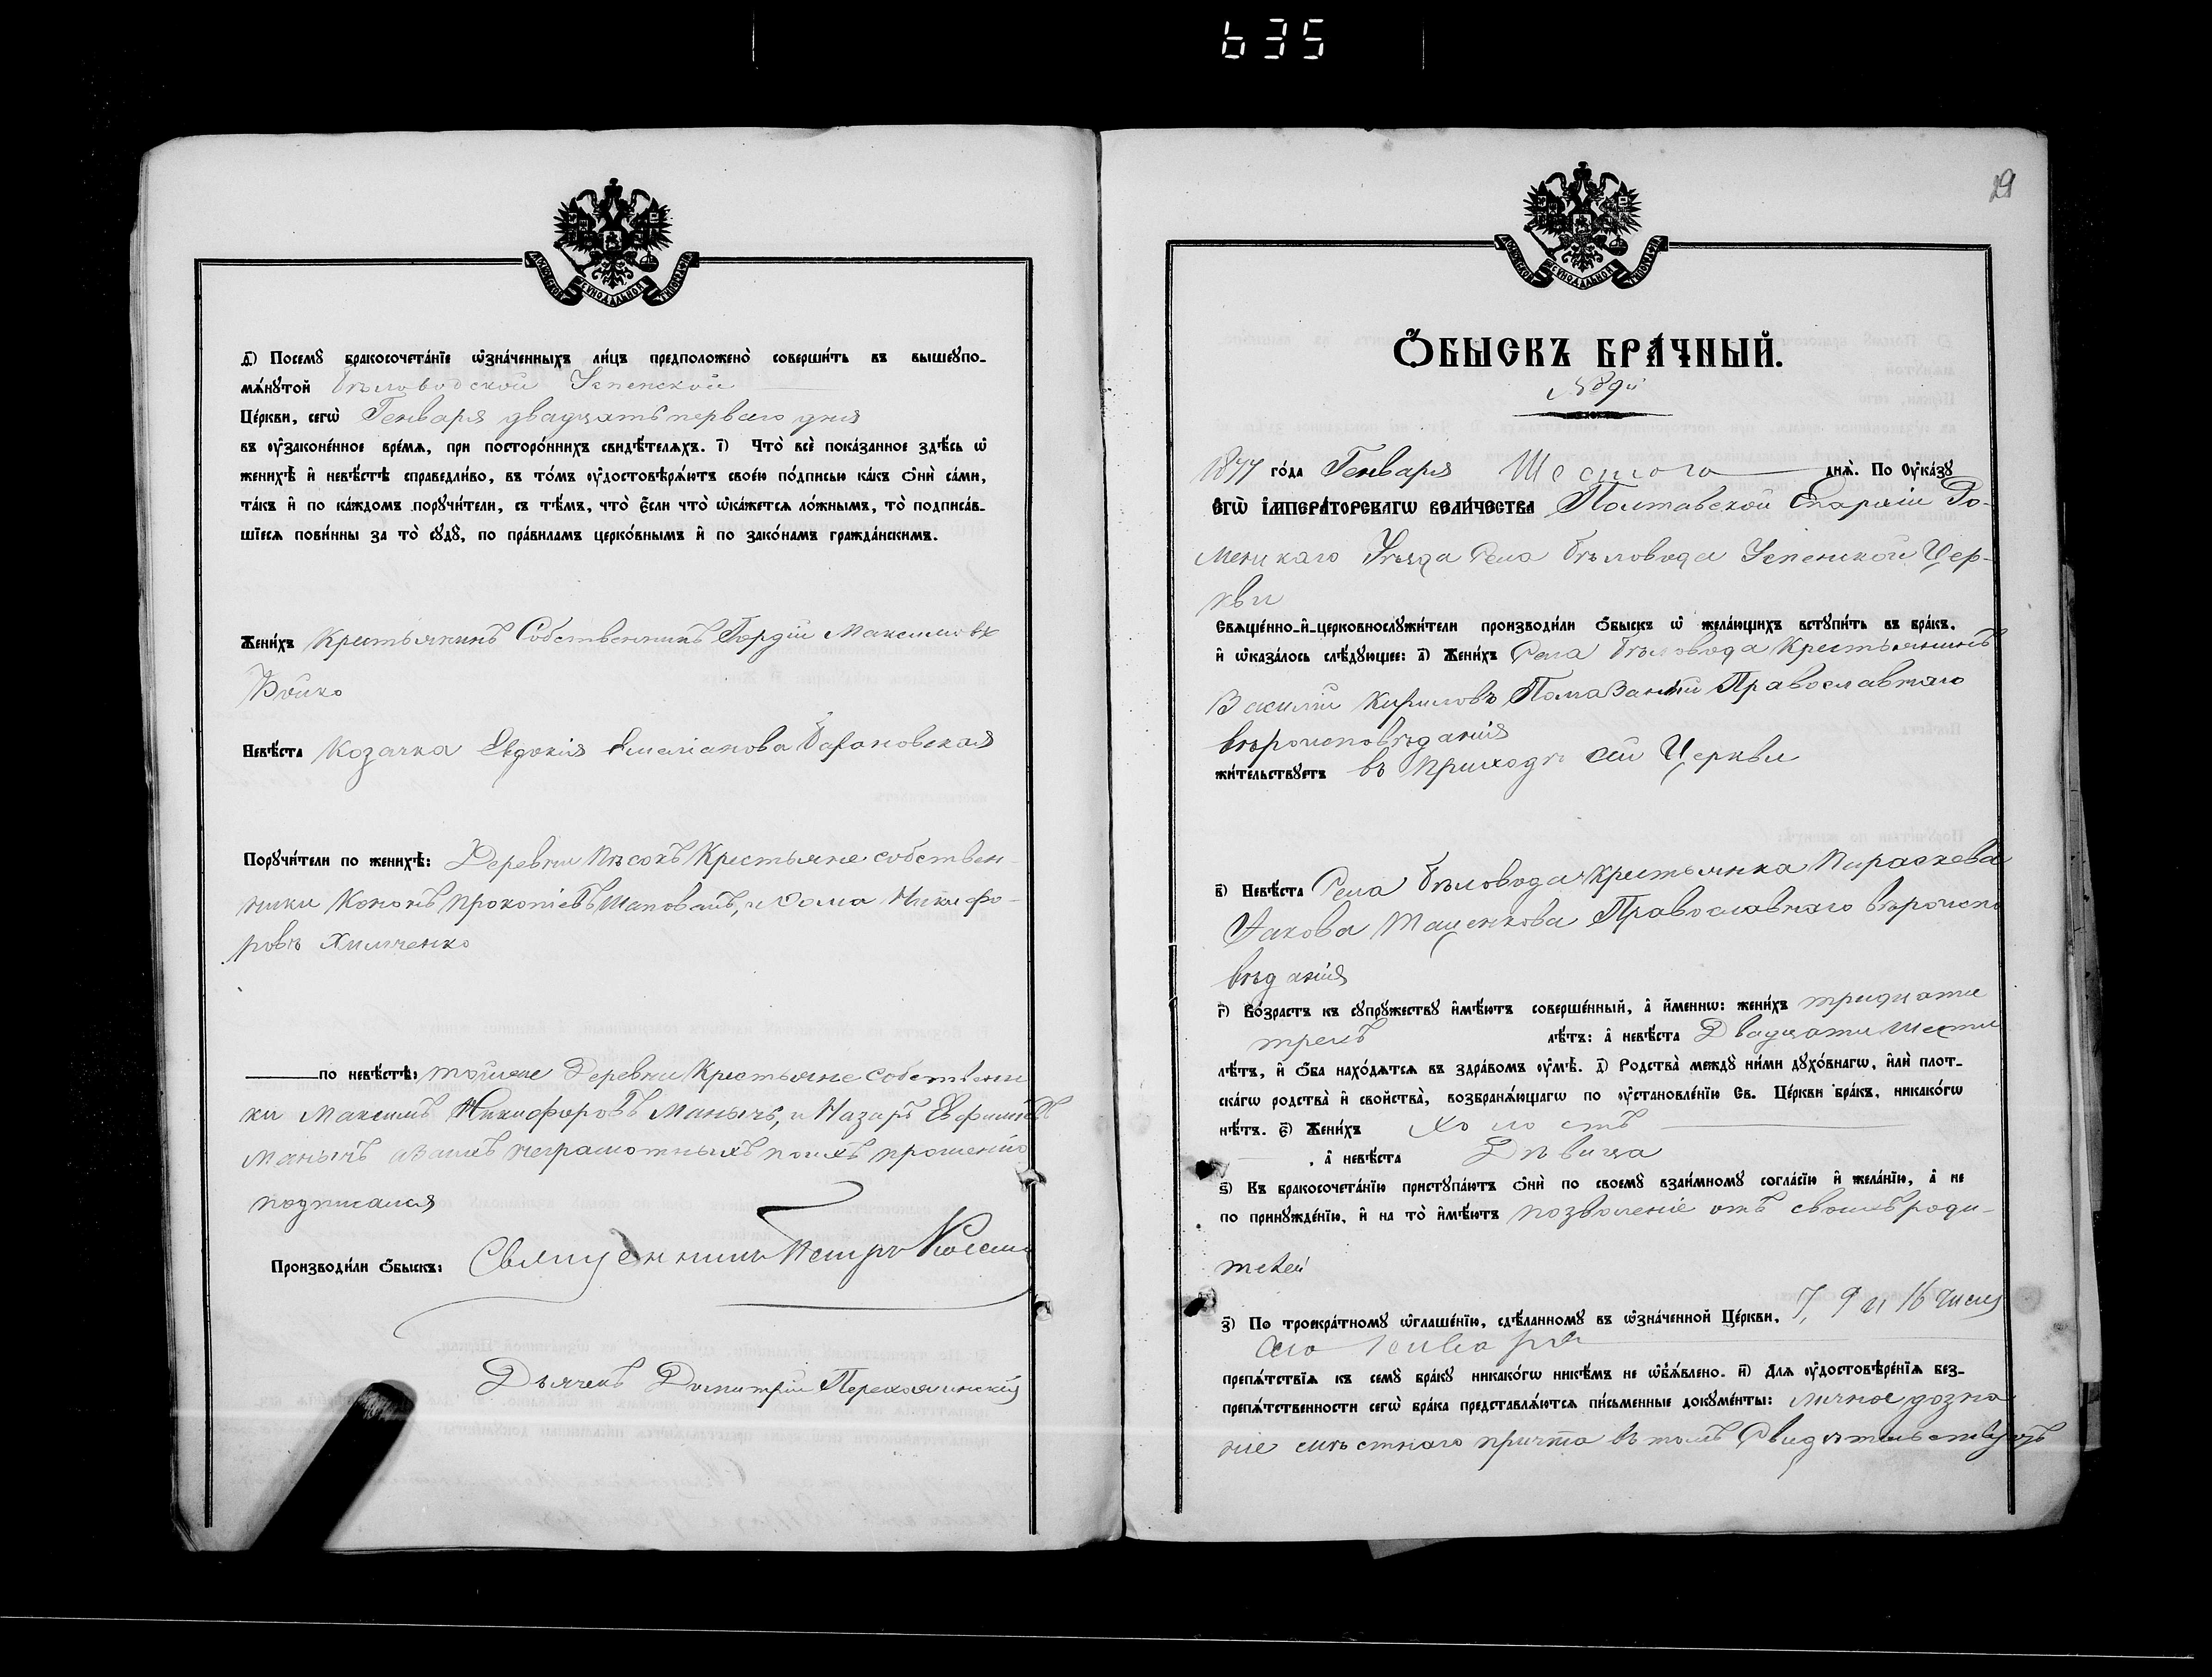 635
МОСКОВСКОЙ СѴНОДАЛЬНОЙ ТИПОГРАФІИ
д҃) Посемꙋ бракосочета́нїе ѡ҆зна́ченныхъ ли́цъ предположено̀ соверши́ть въ вышеꙋпо-
мѧ́нꙋтой Бѣловодской Успенской
Це́ркви, сегѡ̀ Генваря двадцать перваго дня
въ ᲂу҆законе́нное вре́мѧ, при посторо́ннихъ свидѣ́телѧхъ. і҃) Что̀ всѐ пока́занное здѣ́сь ѡ҆
женихѣ̀ и҆ невѣ́стѣ справедли́во, въ то́мъ ᲂу҆достовѣрѧ́ютъ свое́ю по́дписью ка́къ ѻ҆нѝ са́ми,
та́къ и҆ по ка́ждомъ порꙋчи́тели, съ тѣ́мъ, что̀ є҆́сли что̀ ѡ҆ка́жетсѧ ло́жнымъ, то̀ подписа́в-
шїесѧ пови́нны за то̀ сꙋдꙋ̀, по пра́виламъ церко́внымъ и҆ по зако́намъ гражда́нскимъ.
Жени́хъ Крестьянинъ Собственникъ Гордій Максимовъ
Бойко
Невѣ́ста Козачка Евдокія Емеліанова Барановская
Порꙋчи́тели по женихѣ̀: Деревни Пѣсокъ Крестьяне собствен-
ники Кононъ Прокопіевъ Шаповалъ, и Фома Никифо-
ровъ Хильченко
по невѣ́стѣ: тойже Деревни Крестьяне собственни
ки Максимъ Никифоровъ Манычъ, и Назаръ Евфимовъ
Манычъ а Вмѣсто неграмотныхъ по ихъ прошенію
подписался
Производи́ли ѻ҆́быскъ: Священникъ Петръ
Дьячекъ Димитрій
29
МОСКОВСКОЙ СѴНОДАЛЬНОЙ ТИПОГРАФІИ
Ѻ҆́БЫСКЪ БРА́ЧНЫЙ.
№ 9й
1877 го́да Генваря Шестого днѧ̀. По ᲂу҆ка́зꙋ
Є҆ГѠ̀ І҆МПЕРА́ТОРСКАГѠ ВЕЛИ́ЧЕСТВА Полтавской Епархіи Ро-
менскаго Уѣзда Села Бѣловода Успенской Цер-
кви
Свѧще́нно-и҆-церковнослꙋжи́тели производи́ли ѻ҆́быскъ ѡ҆ жела́ющихъ встꙋпи́ть въ бра́къ,
и҆ ѡ҆каза́лось слѣ́дꙋющее: а҃) Жени́хъ Села Бѣловода Крестьянинъ
Василій Кириловъ Помазанъ Православнаго
вѣроисповѣданія
жи́тельствꙋетъ въ приходѣ сей Церкви
в҃) Невѣ́ста Села Бѣловода Крестьянка Параскева
Іакова Тащенкова Православнаго вѣроиспо
вѣданія
г҃) Во́зрастъ къ сꙋпрꙋ́жествꙋ и҆мѣ́ютъ соверше́нный, а҆ и҆́меннѡ: жени́хъ тридцати
трехъ лѣ́тъ: а҆ невѣ́ста Двадцати шести
лѣ́тъ, и҆ ѻ҆́ба нахо́дѧтсѧ въ здра́вомъ ᲂу҆мѣ̀. д҃) Родства̀ междꙋ̀ ни́ми дꙋхо́внагѡ, и҆лѝ плот-
ска́гѡ родства̀ и҆ сво́йства̀, возбранѧ́ющагѡ по ᲂу҆становле́нїю Св. Це́ркви бра́къ, никако́гѡ
нѣ́тъ. є҃) Жени́хъ Холостъ
, а҆ невѣ́ста Дѣвица
ѕ҃) Къ бракосочета́нїю пристꙋпа́ютъ ѻ҆нѝ по своемꙋ̀ взаи́мномꙋ согла́сїю и҆ жела́нїю, а҆ не
по принꙋжде́нїю, и҆ на то̀ и҆мѣ́ютъ позволеніе отъ своихъ роди-
телей
з҃) По троекра́тномꙋ ѡ҆глаше́нїю, сдѣ́ланномꙋ въ ѡ҆зна́ченной Це́ркви, 7, 9 и 16 числ
Генваря
препѧ́тствїѧ къ семꙋ̀ бра́кꙋ никако́гѡ никѣ́мъ не ѡ҆б̾ѧ́влено. и҃) Для ᲂу҆достовѣре́нїѧ без-
препѧ́тственности сегѡ̀ бра́ка представлѧ́ютсѧ пи́сьменные докꙋме́нты: личное дозна
ніе мѣстнаго причта въ томъ Свидѣтельствуютъ